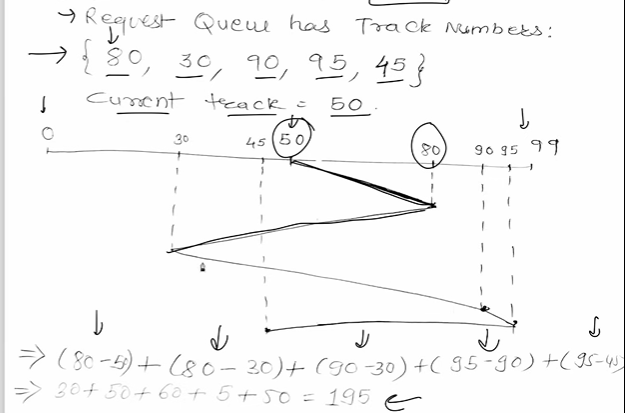 → Request Queue has Track Numbers:
→ {80, 30, 90, 95, 45}
Current track = 50.
0 30 45 50 80 90 95 99
⇒ (80-50) + (80-30) + (90-30) + (95-90) + (95-45)
⇒ 30+50+60+5+50 = 195